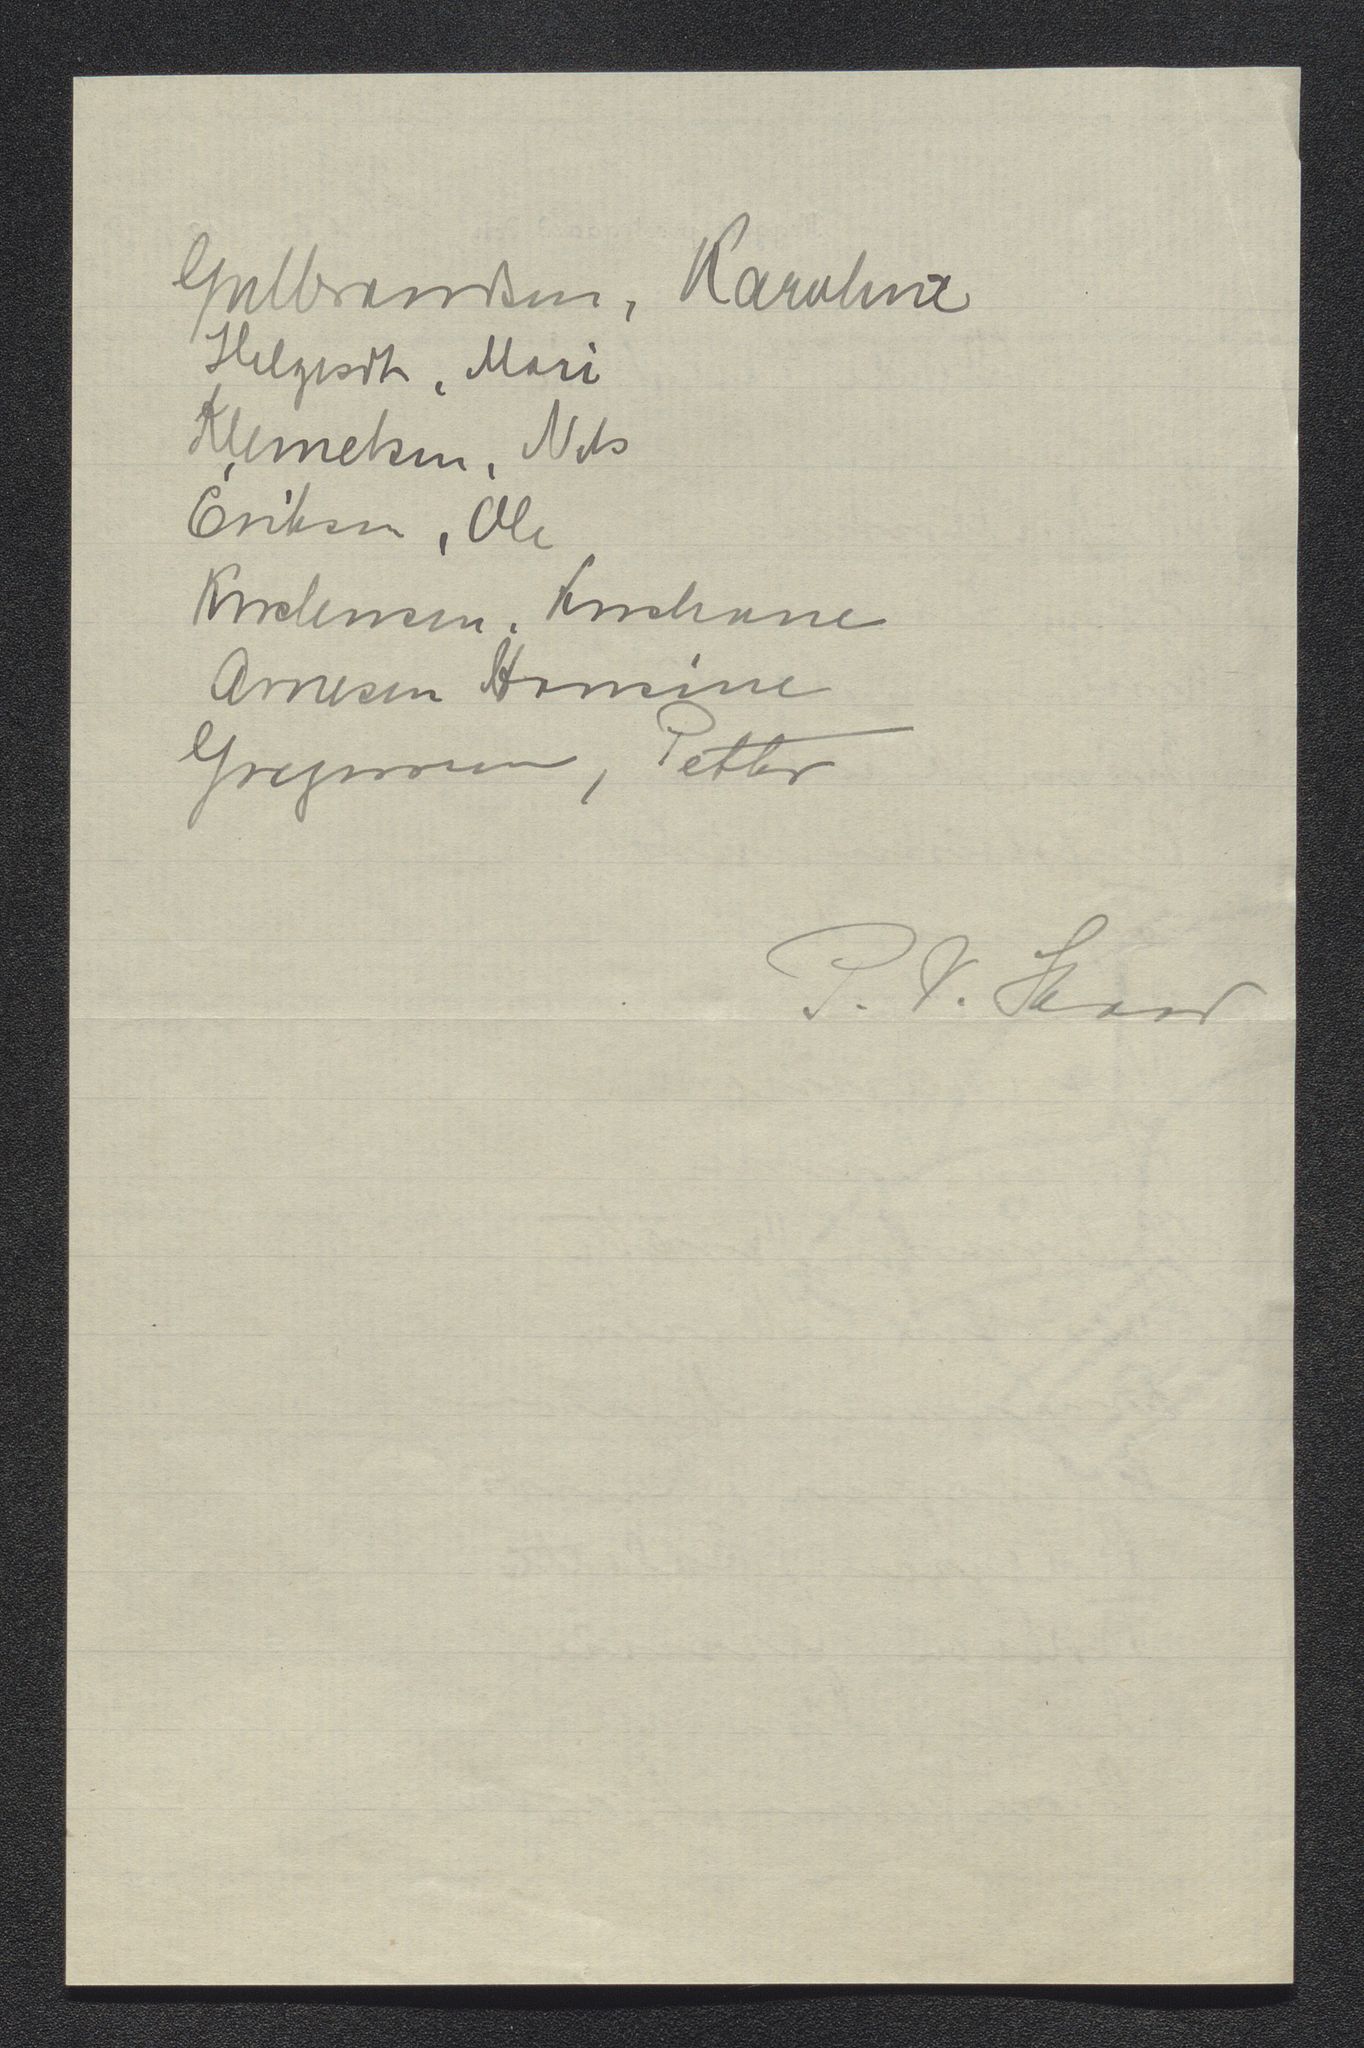 Gulbrandsen, Karoline
Helgesdtr, Mari
Klemetsen, Nils
Eriksen, Ole
Kristensen, Kristiane
Arnesen Hansine
Gregersen, Petter
P. V. Skaar